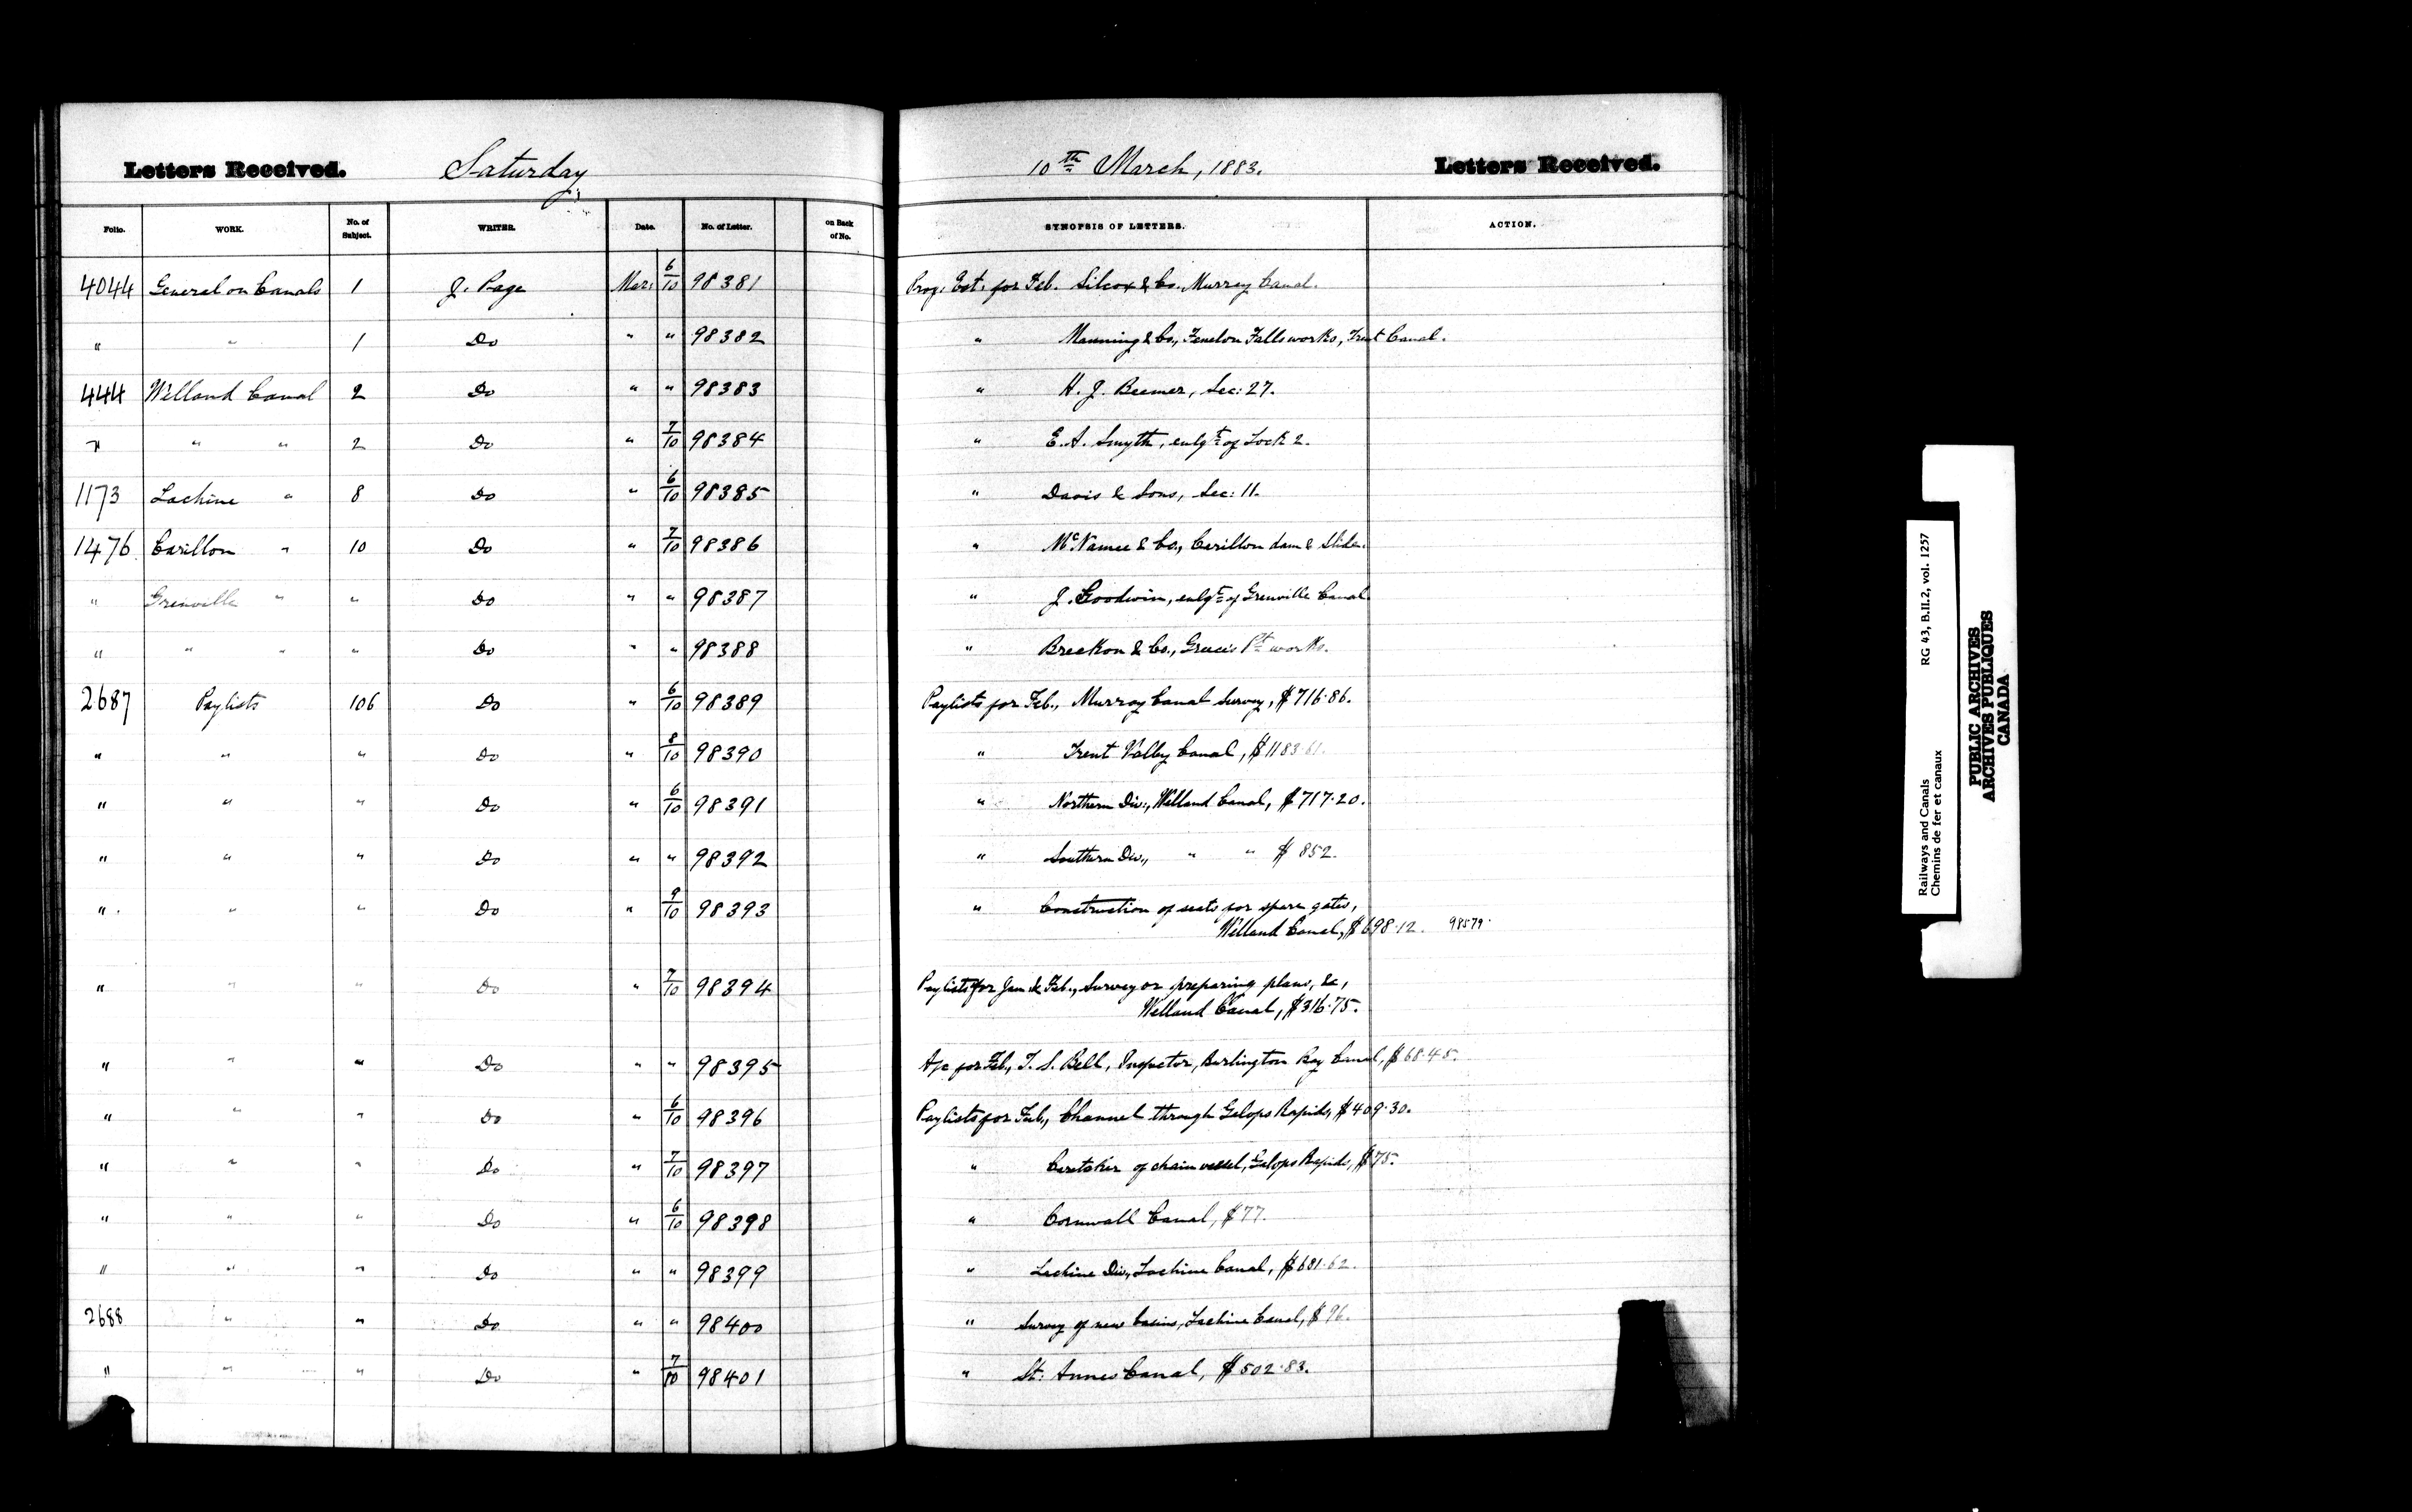 Letters Received. Saturday 10th March, 1883. Letters Received.
Folio. WORK. No. of Subject. WRITER. Date. No. of Letter. on Back of No. SYNOPSIS OF LETTERS. ACTION.
4044 General on Canals 1 J. Page Mar: 6/10 98381 Prog. Est. for Feb. Silcox & Co. Murray Canal.
" " 1 Do " " 98382 " Manning & Co., Fenelon Falls works, Trent Canal.
444 Welland Canal 2 Do " " 98383 " H. J. Beemer, Sec: 27.
" " " 2 Do " 7/10 98384 " E. A. Smyth, enlgt of Lock 2.
1173 Lachine " 8 Do " 6/10 98385 " Davis & Sons, Sec: 11.
1476 Carillon " 10 Do " 7/10 98386 " McNamee & Co., Carillon dam & Slide.
" Grenville " " Do " " 98387 " J. Goodwin, enlgt of Grenville Canal
" " " " Do " " 98388 " Breckon & Co., Greece's Pt works.
2687 Paylists 106 Do " 6/10 98389 Paylists for Feb., Murray Canal Survey, $716.86.
" " " Do " 8/10 98390 " Trent Valley Canal, $1183.61.
" " " Do " 6/10 98391 " Northern Div:, Welland Canal, $717.20.
" " " Do " " 98392 " Southern Div., " " $852.
" " " Do " 9/10 98393 " Construction of seats for spare gates,
Welland Canal, $698.12. 98579
" " " Do " 7/10 98394 Paylists for Jan & Feb., Survey or preparing plans, &c,
Welland Canal, $316.75.
" " " Do " " 98395 A/c for Feb, T. S. Bell, Inspector, Burlington Bay Canal, $68.45.
" " " Do " 6/10 98396 Paylists for Feb., Channel through Galops Rapids, $409.30.
" " " Do " 7/10 98397 " Caretaker of chain vessel, Galops Rapids, $75.
" " " Do " 6/10 98398 " Cornwall Canal, $77.
" " " Do " " 98399 " Lachine Div., Lachine Canal, $681.62.
2688 " " Do " " 98400 " Survey of new basins, Lachine Canal, $96.
" " " Do " 7/10 98401 " St. Annes Canal, $502.83.
Railways and Canals RG 43, B.II.2, vol. 1257
Chemins de fer et canaux
PUBLIC ARCHIVES
ARCHIVES PUBLIQUES
CANADA